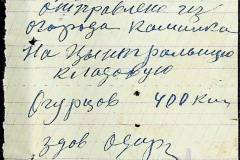 отправлено из
огорода Камышка
на Цынтральную
кладовую
Огурцов 400 кил
здов